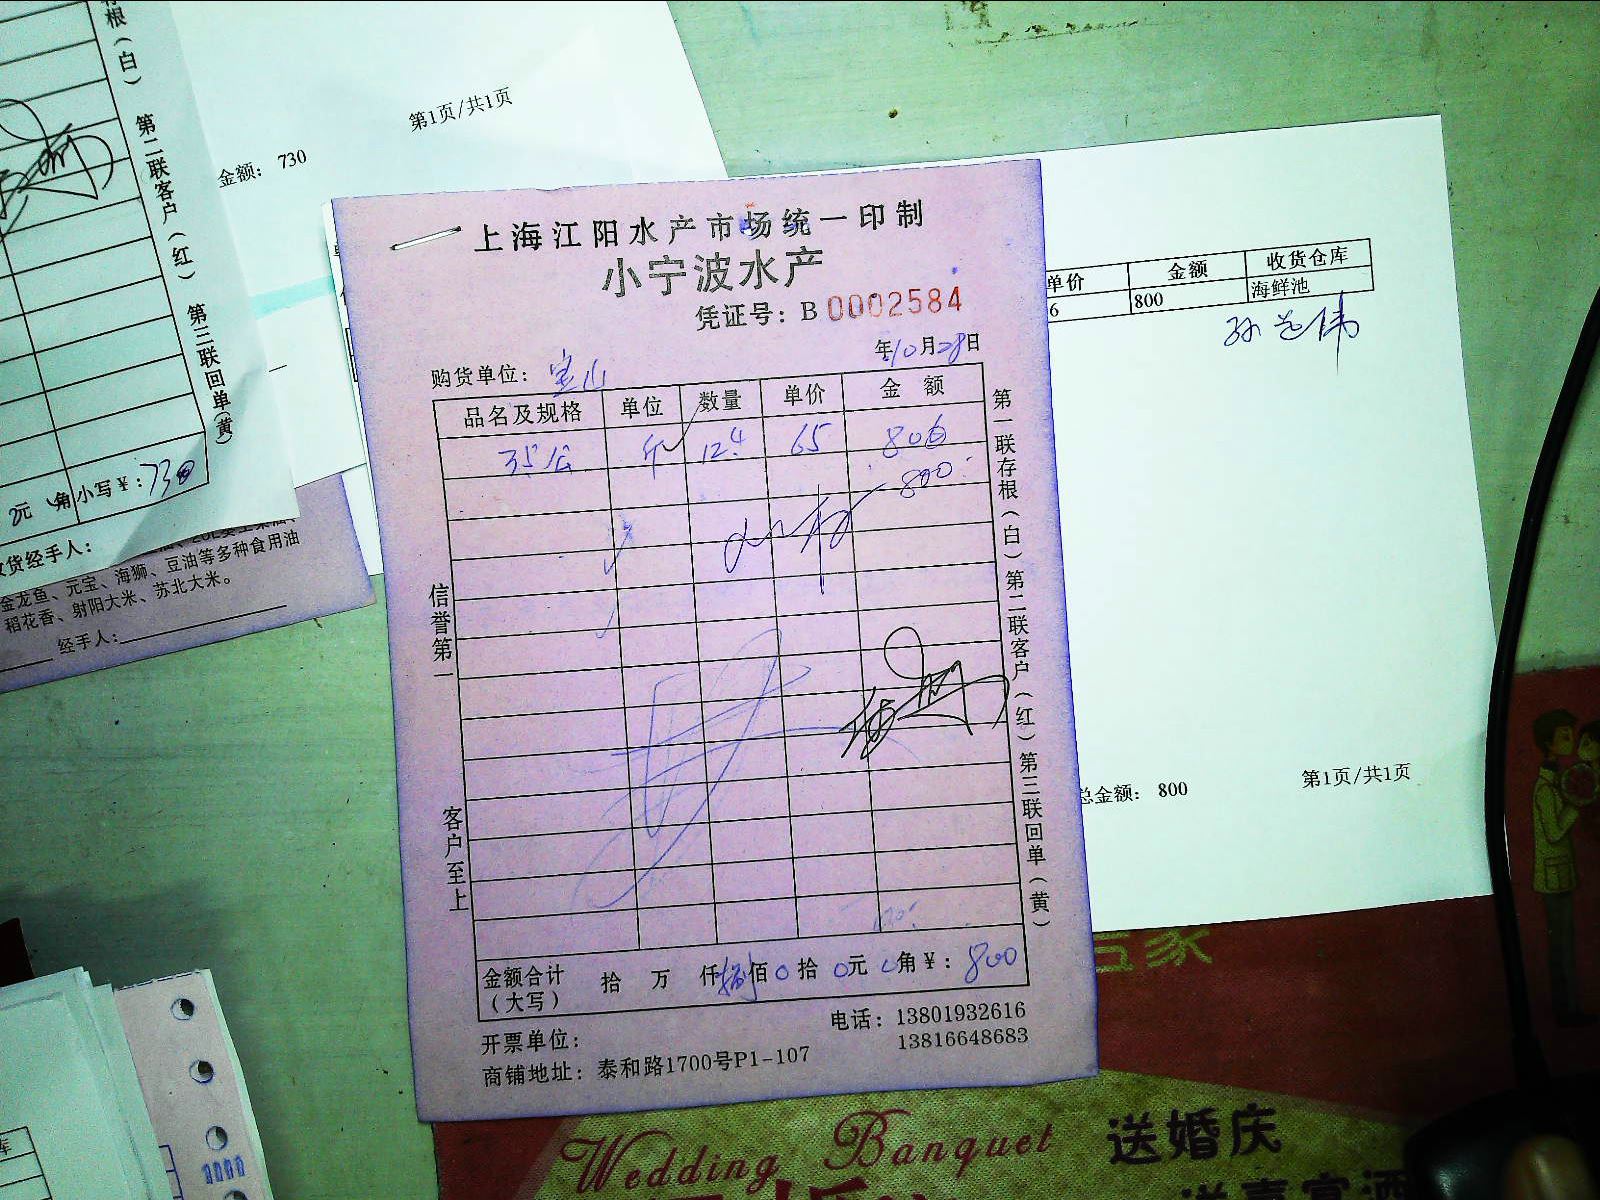 根（白） 第二联客户（红） 第三联回单（黄）
第1页/共1页
金额： 730
元 角 小写￥：730
货经手人：
金龙鱼、元宝、海狮、豆油等多种食用油
稻花香、射阳大米、苏北大米。
经手人：
上海江阳水产市场统一印制
小宁波水产
凭证号：B 0002584
年10月28日
购货单位：宝山
品名及规格 单位 数量 单价 金额
斤 12.4 65 806
800
信誉第一
客户至上
第一联存根（白）第二联客户（红）第三联回单（黄）
金额合计（大写） 拾 万 仟 捌佰 0拾 0元 0角￥：800
开票单位：
电话：13801932616
13816648683
商铺地址：泰和路1700号P1-107
单价 金额 收货仓库
6 800 海鲜池
总金额： 800
第1页/共1页
Wedding Banquet 送婚庆